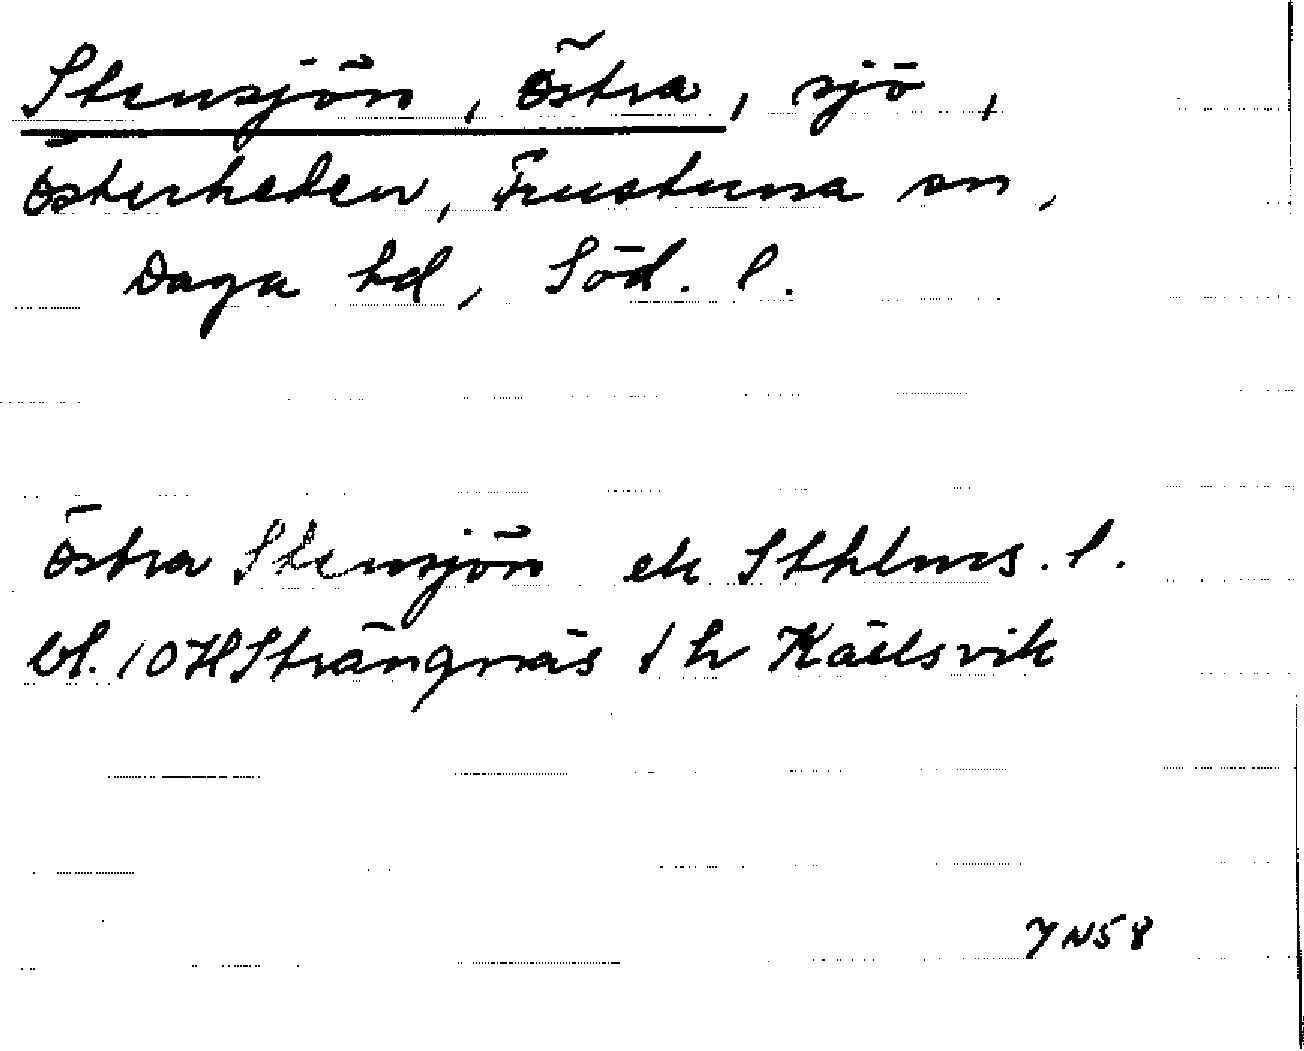 Stensjön, Östra, sjö,
Österheden, Frustuna sn,
Daga hd, Söd. l.
Östra Stensjön ek Sthlms. l.
bl. 10H Strängnäs 1 h Källsvik
YN58